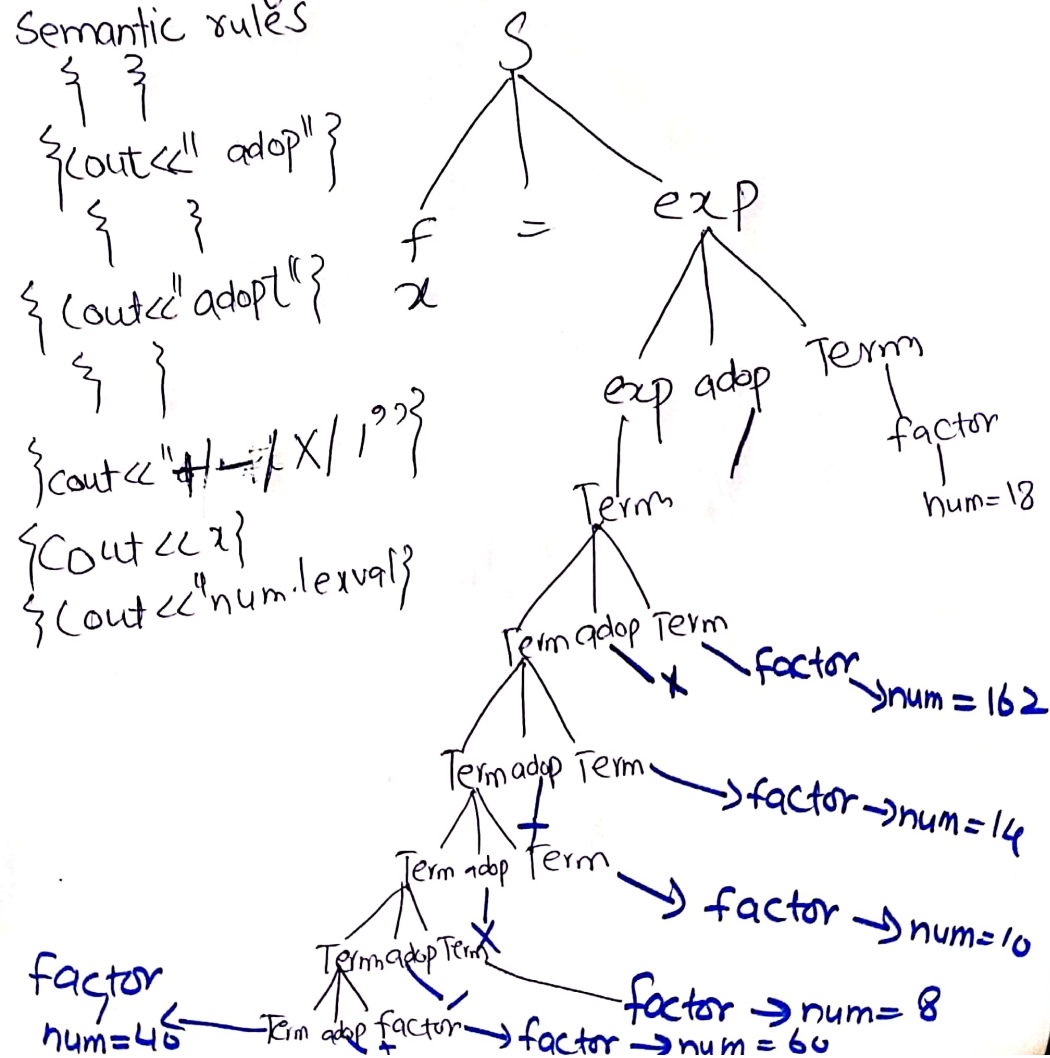 Semantic rules
{ }
{cout<<" adop"}
{ }
{cout<<" adopt"}
{ }
{cout<<" X/ ,"}
{Cout <<x}
{cout<<"num.lexval}
S
f = exp
x
exp adop Term
/ factor
num=18
Term
Term adop Term factor
x num = 162
Term adop Term factor num=14
+
Term adop Term factor num=10
X
Term adop Term factor num= 8
/
Term adop factor factor num = 60
+
factor